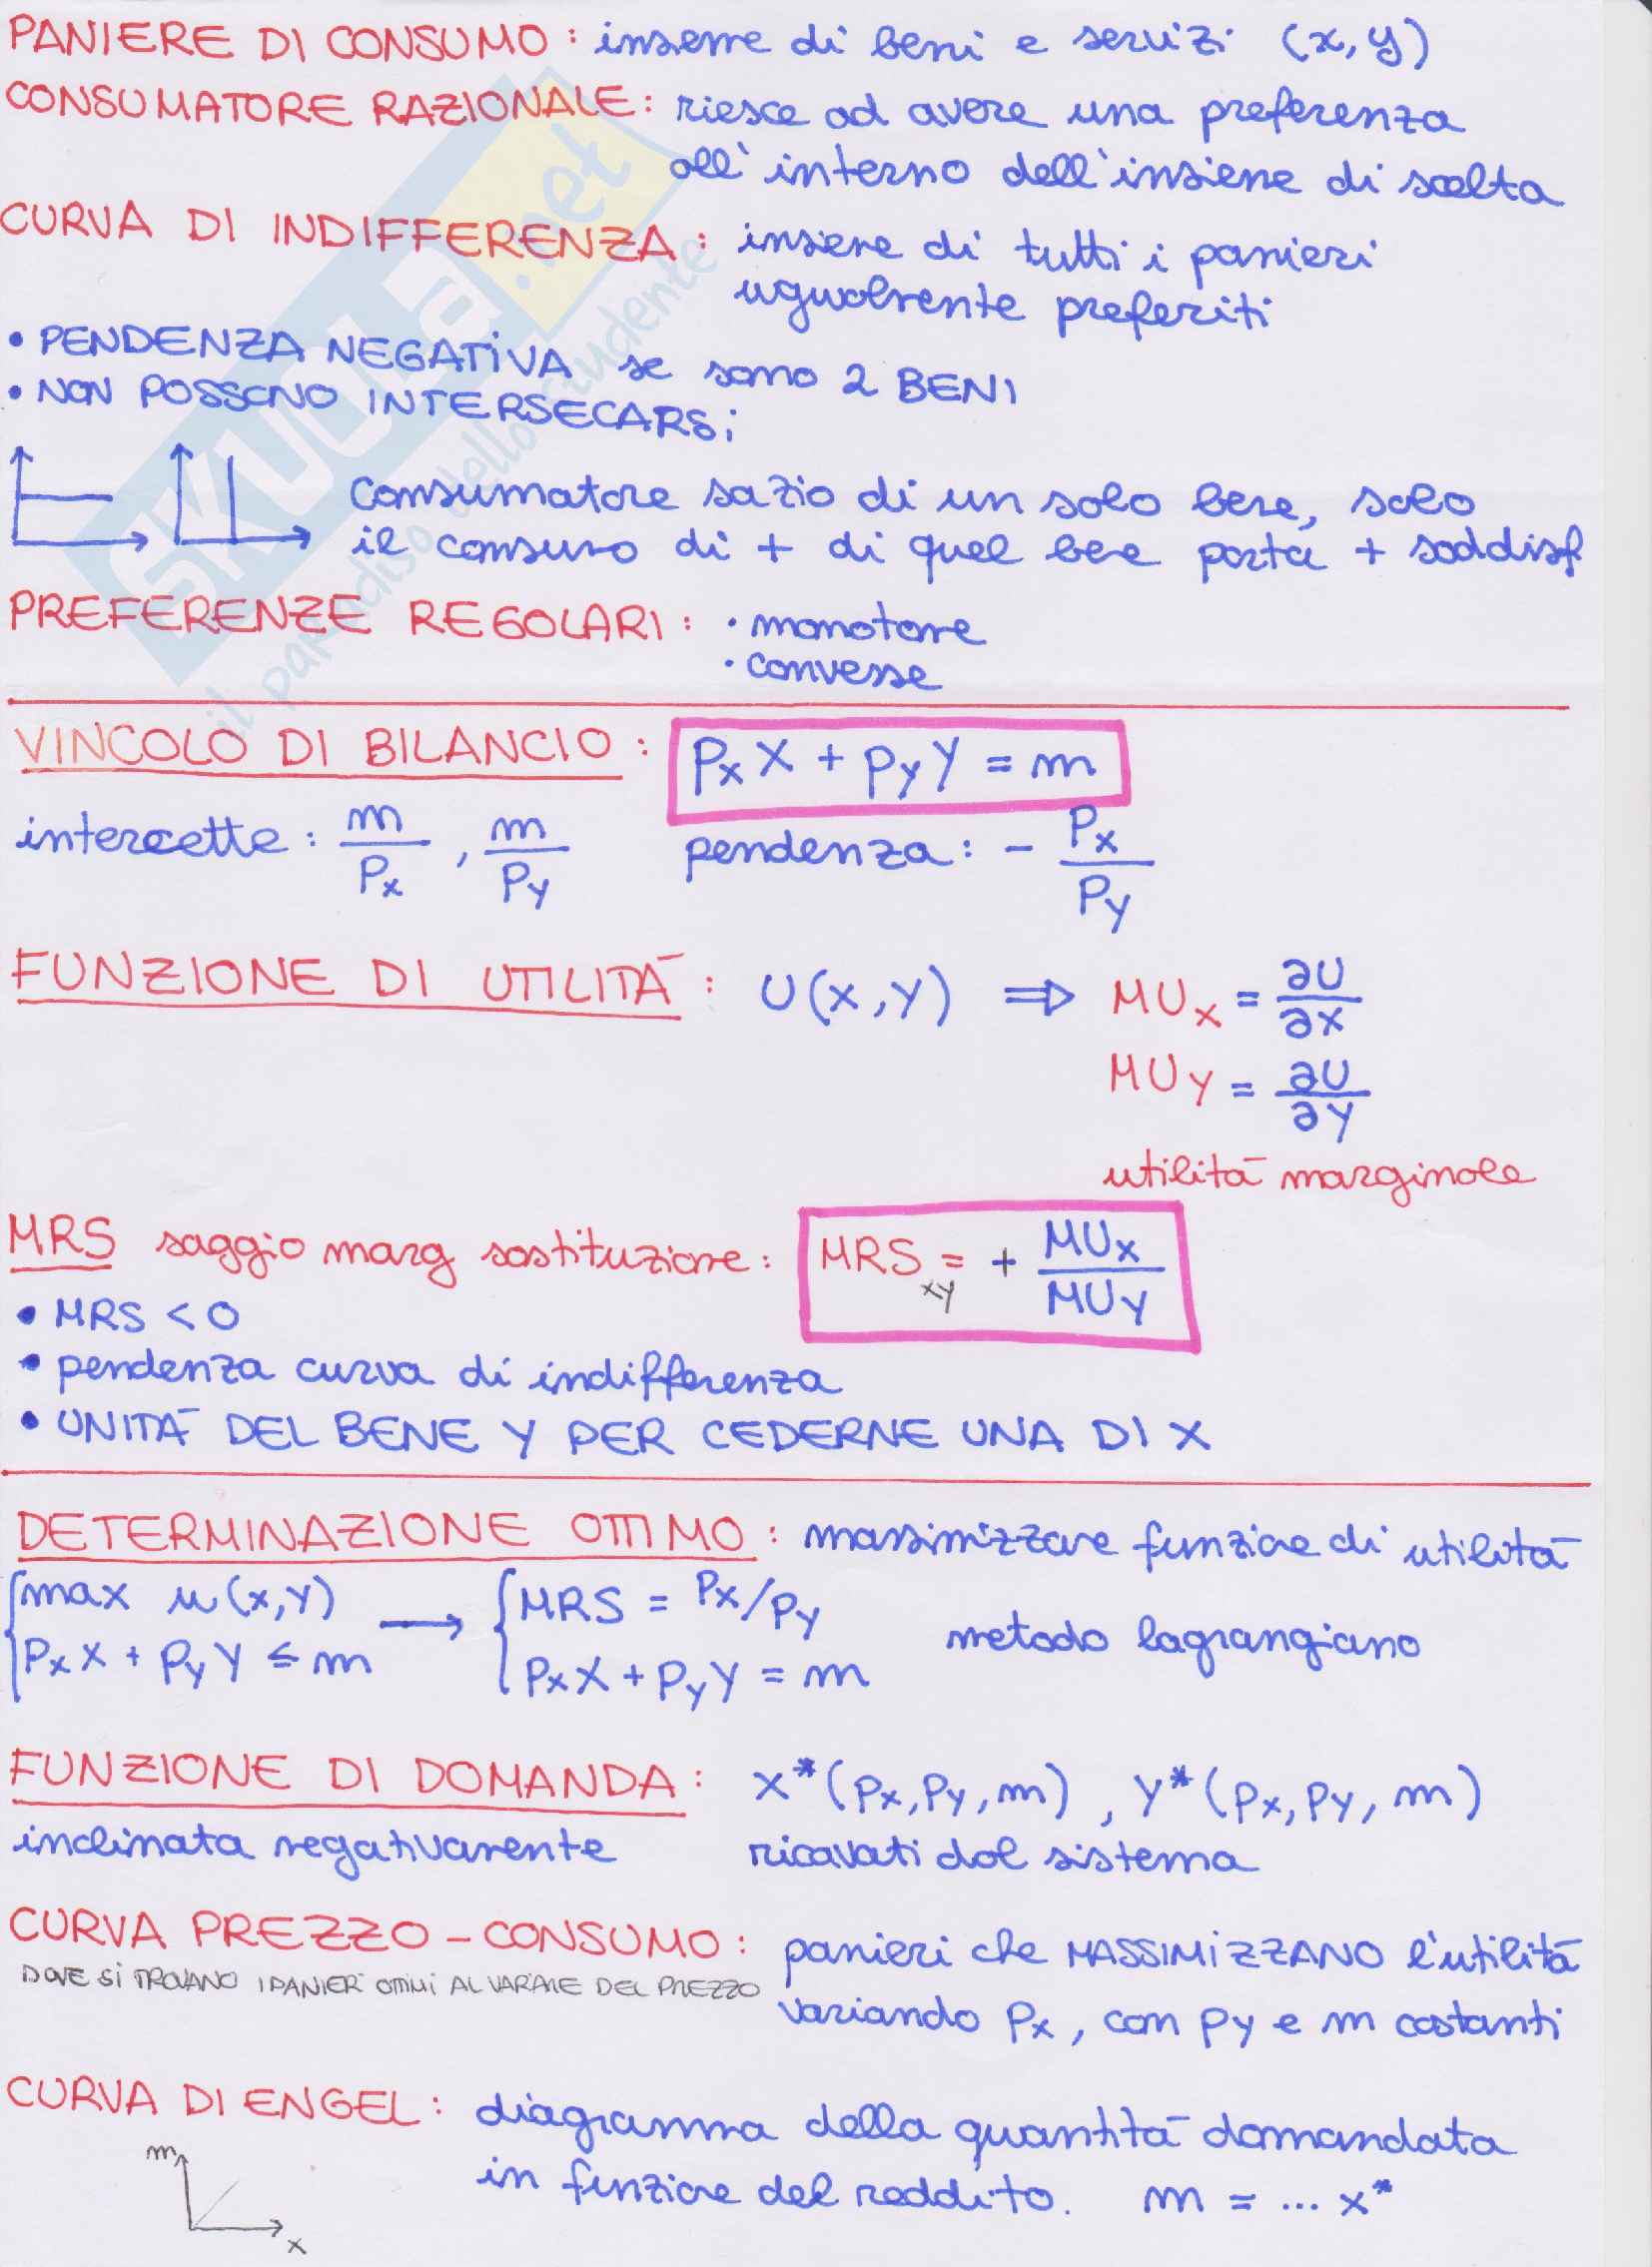 PANIERE DI CONSUMO: insieme di beni e servizi (x, y)
CONSUMATORE RAZIONALE: riesce ad avere una preferenza
all'interno dell'insieme di scelta
CURVA DI INDIFFERENZA: insieme di tutti i panieri
ugualmente preferiti
• PENDENZA NEGATIVA se sono 2 BENI
• NON POSSONO INTERSECARSi
Consumatore sazio di un solo bene, solo
il consumo di + di quel bene porta + soddisf
PREFERENZE REGOLARI: • monotone
• convesse
VINCOLO DI BILANCIO: pₓX + p_y Y = m
intercette: m/Pₓ , m/P_y pendenza: - Pₓ/P_y
FUNZIONE DI UTILITÀ: U(x,y) ⇒ MUₓ = ∂U/∂x
MU_y = ∂U/∂y
utilità marginale
MRS saggio marg sostituzione: MRS_xy = + MUₓ/MU_y
• MRS < 0
• pendenza curva di indifferenza
• UNITÀ DEL BENE Y PER CEDERNE UNA DI X
DETERMINAZIONE OTTIMO: massimizzare funzione di utilità
{max u(x,y) → {MRS = Pₓ/p_y
{PₓX + p_y Y ≤ m {PₓX + p_y Y = m metodo lagrangiano
FUNZIONE DI DOMANDA: x*(pₓ, p_y, m), y*(pₓ, p_y, m)
inclinata negativamente ricavati dal sistema
CURVA PREZZO-CONSUMO: panieri che MASSIMIZZANO l'utilità
DOVE SI TROVANO I PANIERI OTTIMI AL VARIARE DEL PREZZO
variando pₓ, con p_y e m costanti
CURVA DI ENGEL: diagramma della quantità domandata
in funzione del reddito. m = ... x*
m
x
SKUOLa.net
il paradiso dello studente